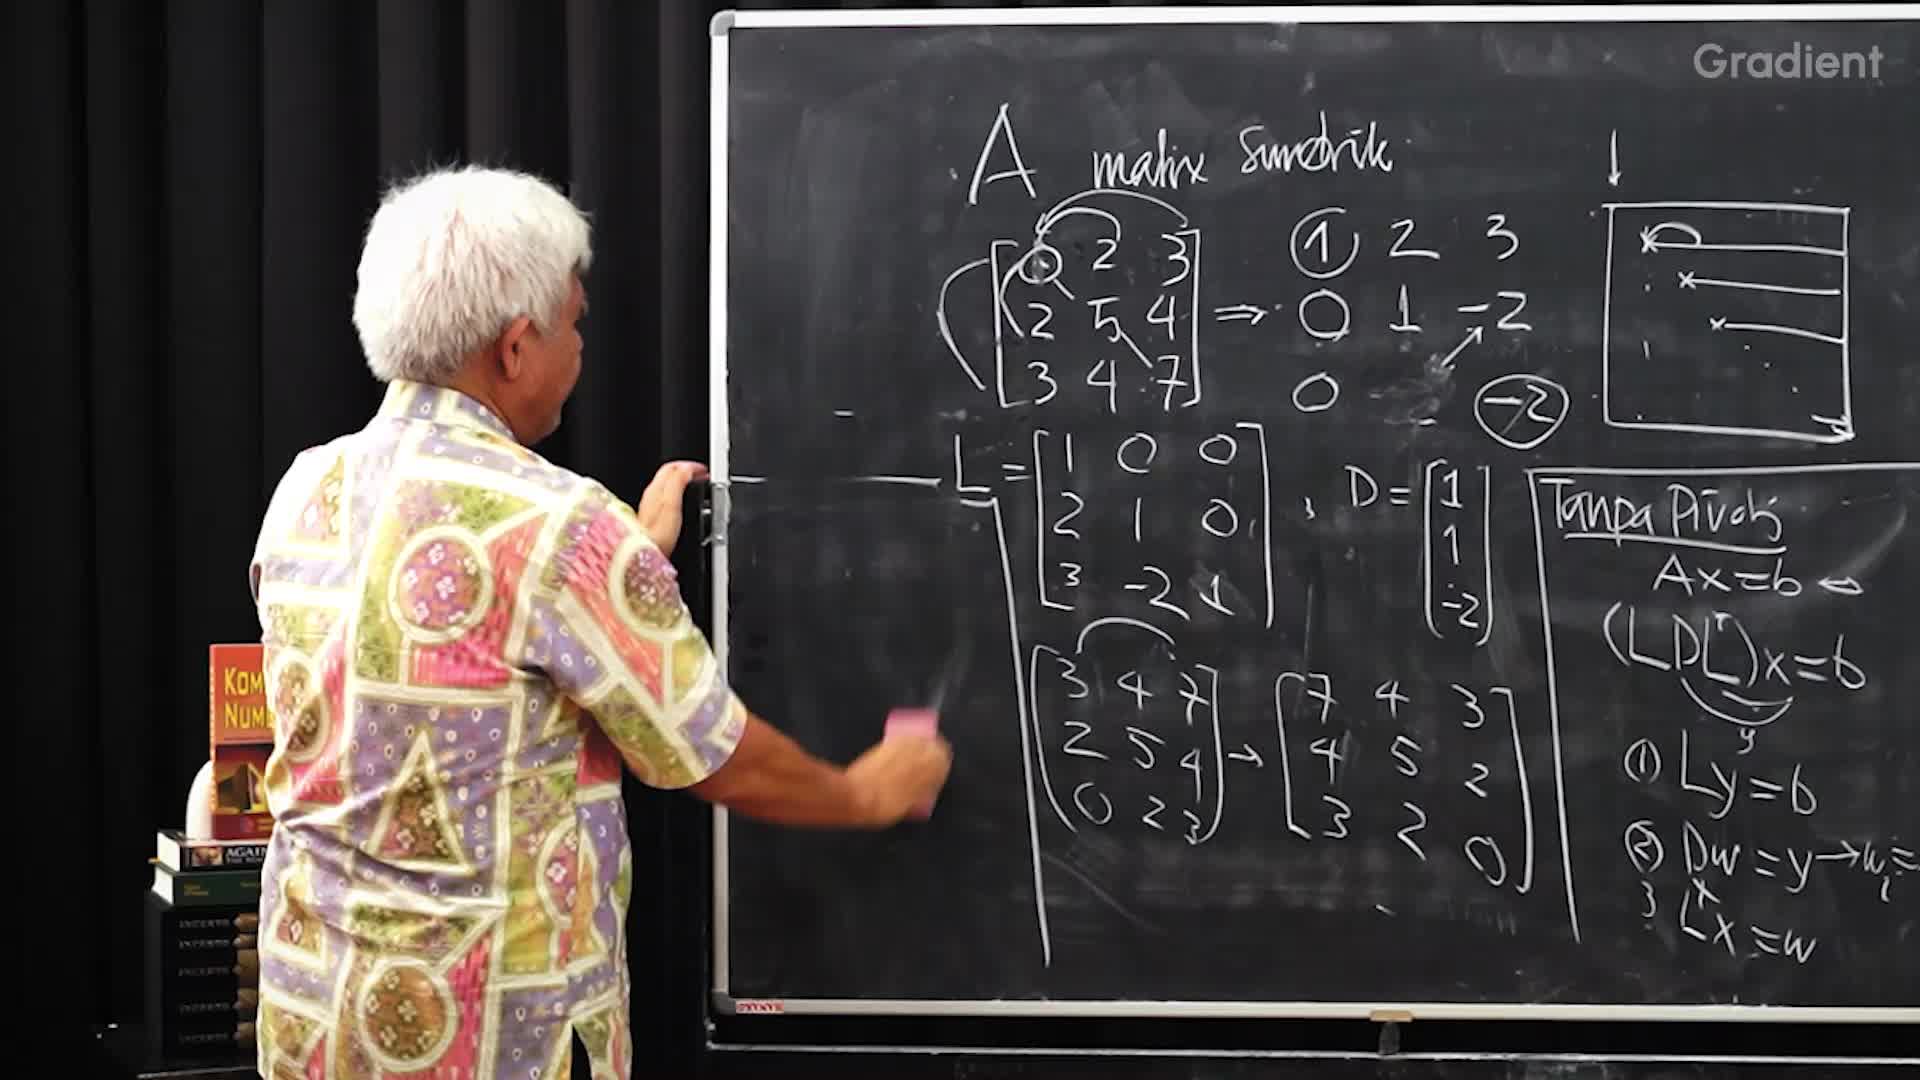 Gradient
A matrix simetrik
[0 2 3] 1 2 3
[2 5 4] ⇒ 0 1 -2
[3 4 7] 0 -2
L = [1 0 0]
[2 1 0]
[3 -2 1]
, D = [1]
[1]
[-2]
[3 4 7]
[2 5 4]
[0 2 3]
→ [7 4 3]
[4 5 2]
[3 2 0]
Tanpa Pivot
Ax=b ↔
(LDLᵀ)x=b
y
① Ly=b
② Dw=y→wᵢ=
3 Lᵀx=w
KOM
NUM
AGAIN
INCERTO
INCERTO
INCERTO
INCERTO
INCERTO